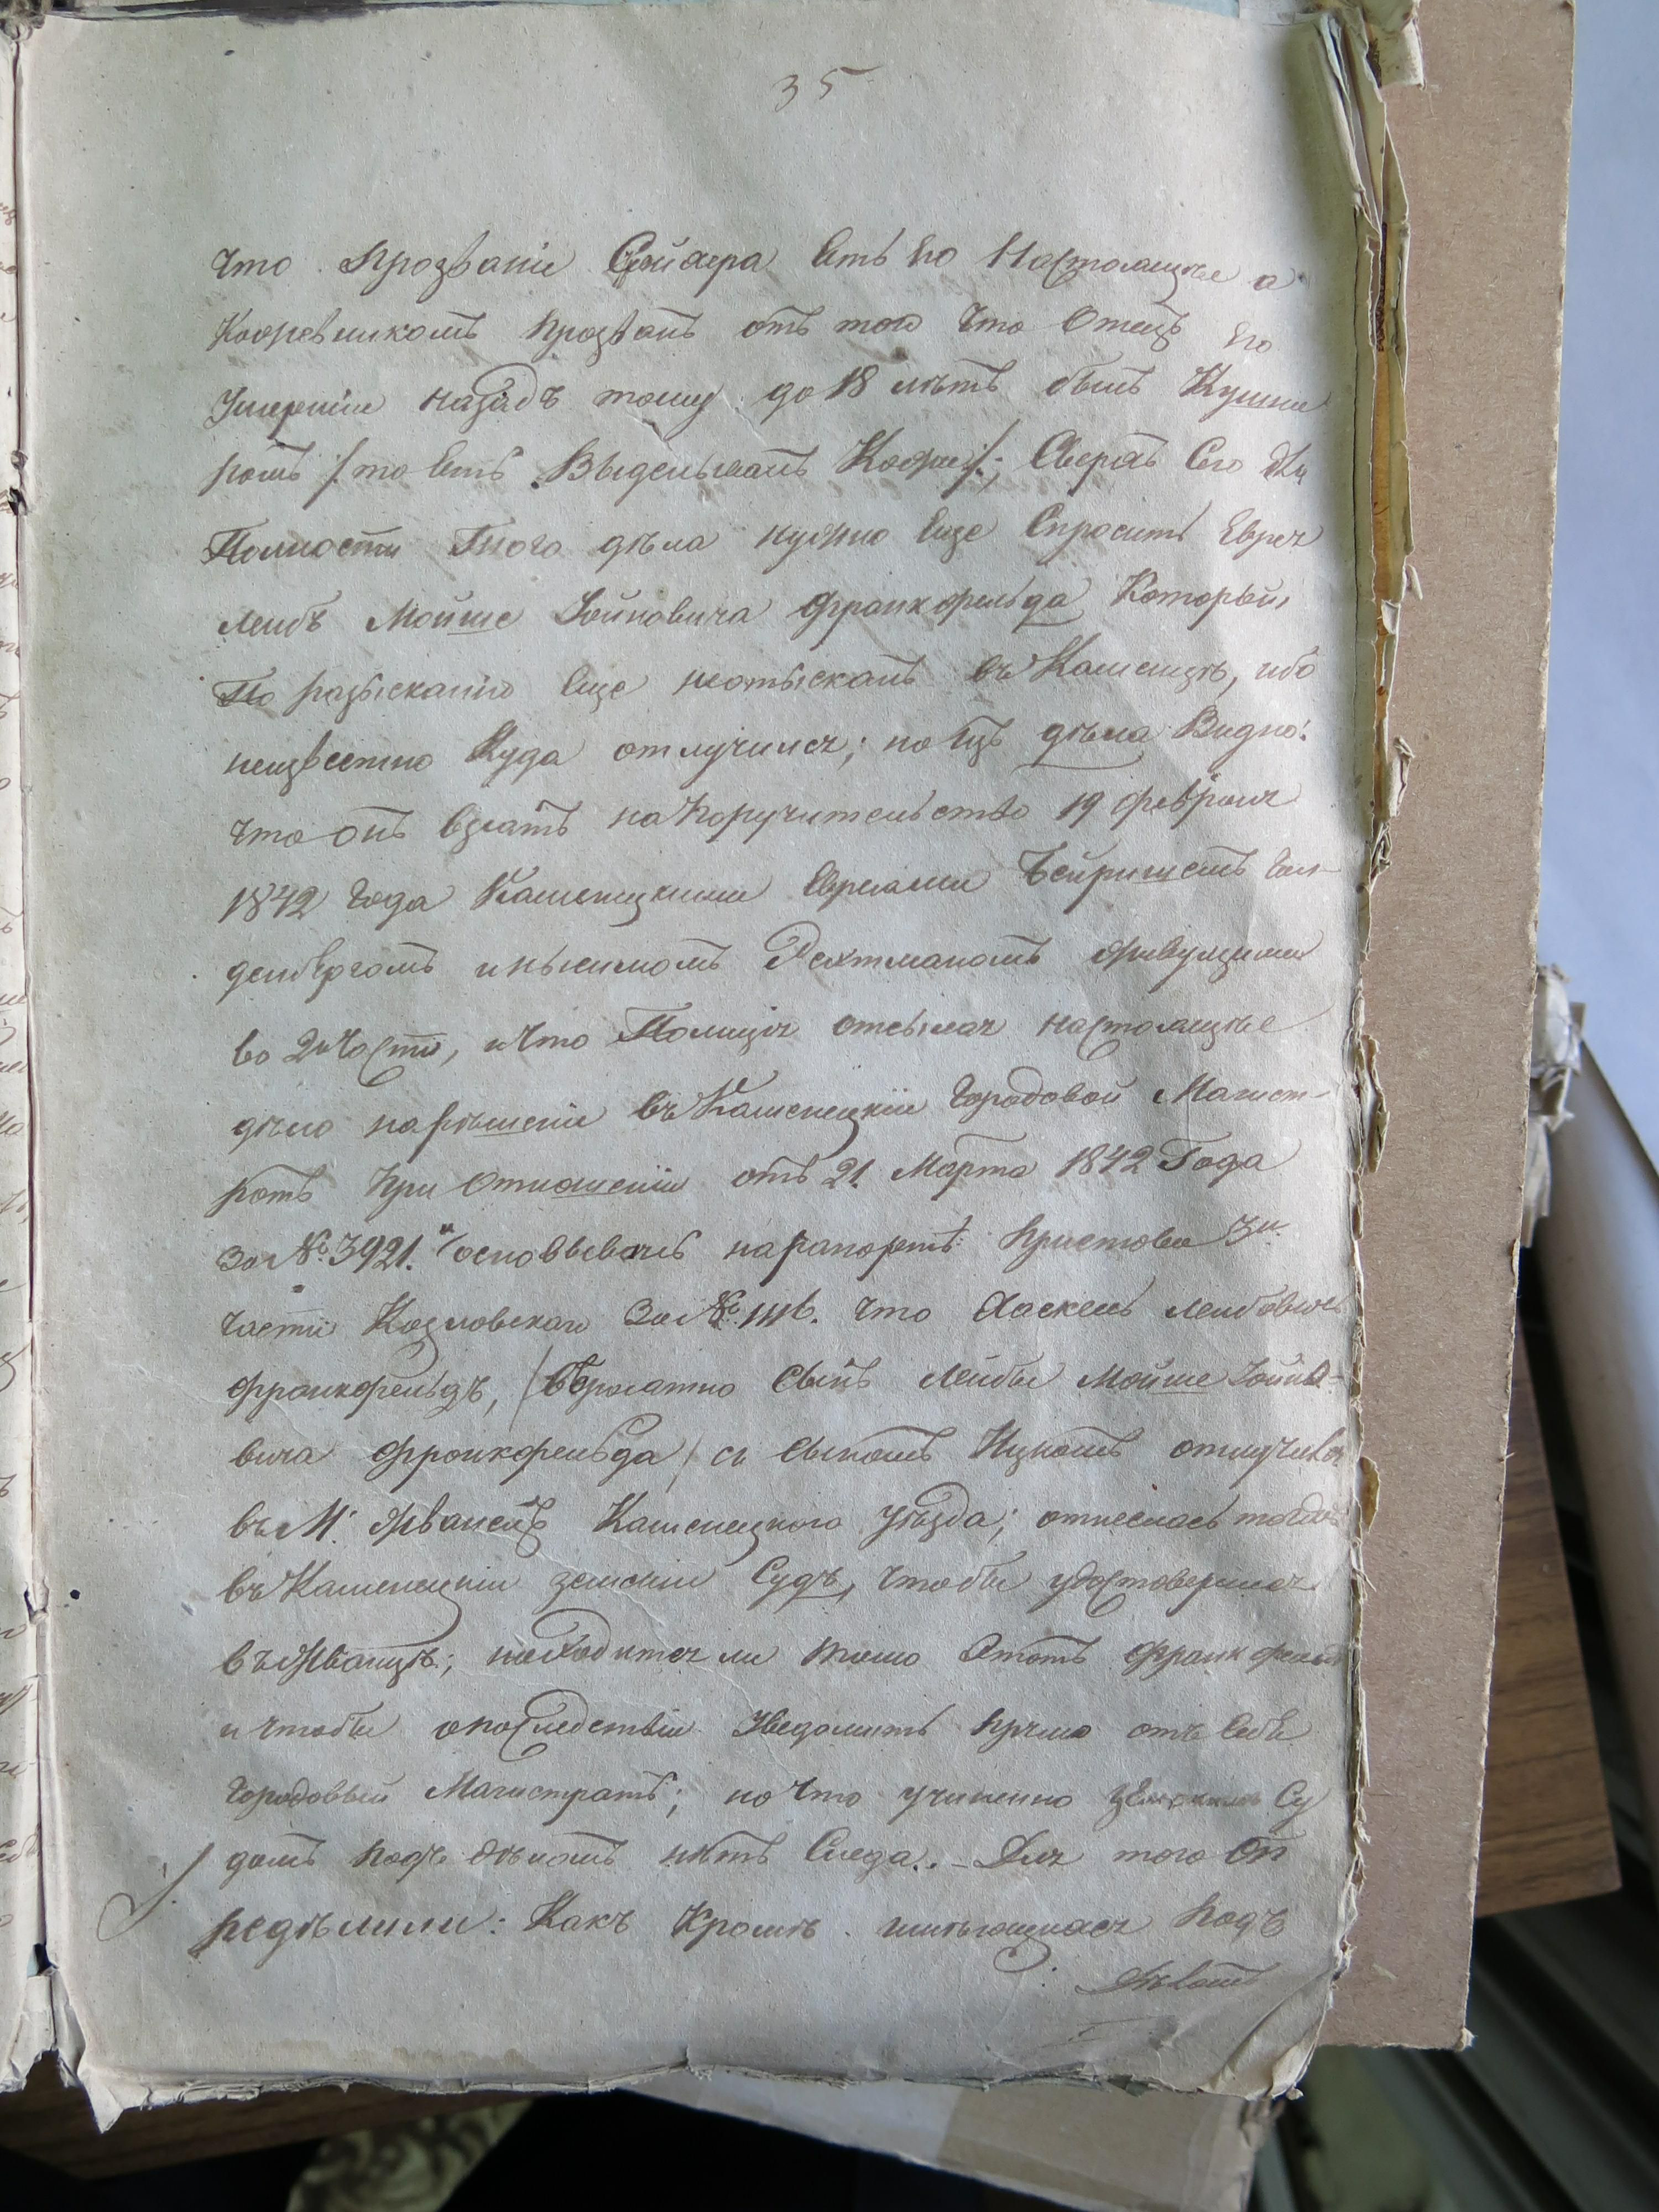 35
что прозваніе Сойфера есть его Настоящее а
Ковревникомъ прозванъ отъ того что Отецъ его
Умершій назадъ тому до 18 лѣтъ былъ Кушни
ромъ /: то есть Выделывалъ Кожи :/; Сверхъ Сего для
Полности Этого дѣла нужно еще Спросить Еврея
Лейбъ Мойше Іойновича Франкфельда Который
По разысканію еще неотысканъ въ Каменцѣ, ибо
неизвестно Куда отлучился; но изъ дѣла Видно:
что онъ взятъ на поручительство 19 февраля
1842 года Каменецкими Евреями Беришемъ Гол-
денбергомъ и Рехтманомъ живущими
во 2й Части, и что Полиція отсылая настоящее
дѣло на рѣшеніе въ Каменецкій Городовой Магист-
ратъ при Отношеніи отъ 21. Марта 1842 Года
за № 3921. и основываясь на рапортѣ Пристава 3й
части Козловскаго За № 1116. что Хаскель Лейбовичъ
Франкфельдъ, / вѣроятно Сынъ Лейбы Мойше Іойно-
вича Франкфельда / съ Сыномъ Ицкомъ отлучился
въ М: Жванецъ Каменецкого Уѣзда; отнеслась также
въ Каменецкій земскій Судъ, чтобы удостоверился
въ Жванцѣ; находится ли тамо Этотъ Франкфельдъ
и чтобы о последствіи Уведомить прямо отъ Себя
Городовый Магистратъ; но что учиненно земскимъ Су
домъ подъ дѣломъ нѣтъ Следа. – Для того Оп
редѣлили: Какъ Кромѣ имѣющихся подъ
Дѣломъ